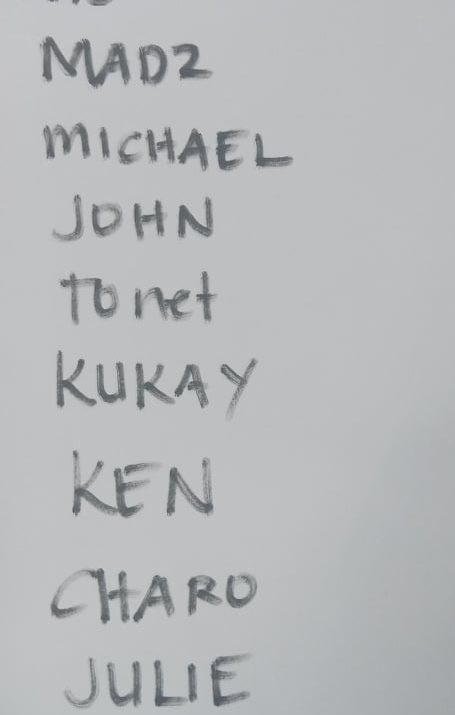 MADZ
MICHAEL
JOHN
Tonet
KUKAY
KEN
CHARO
JULIE